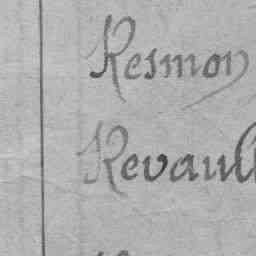 Resmon
Revaul